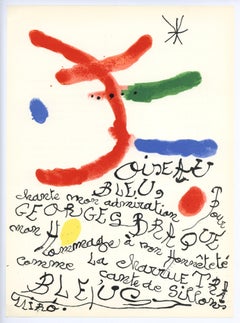 OISEAU
BLEU,
chante mon admiration
Pour
GEORGES BRAQUE
mon
Hommage à son Honnêteté
comme la charrue
cante de sillons
BLEUS
Miró.